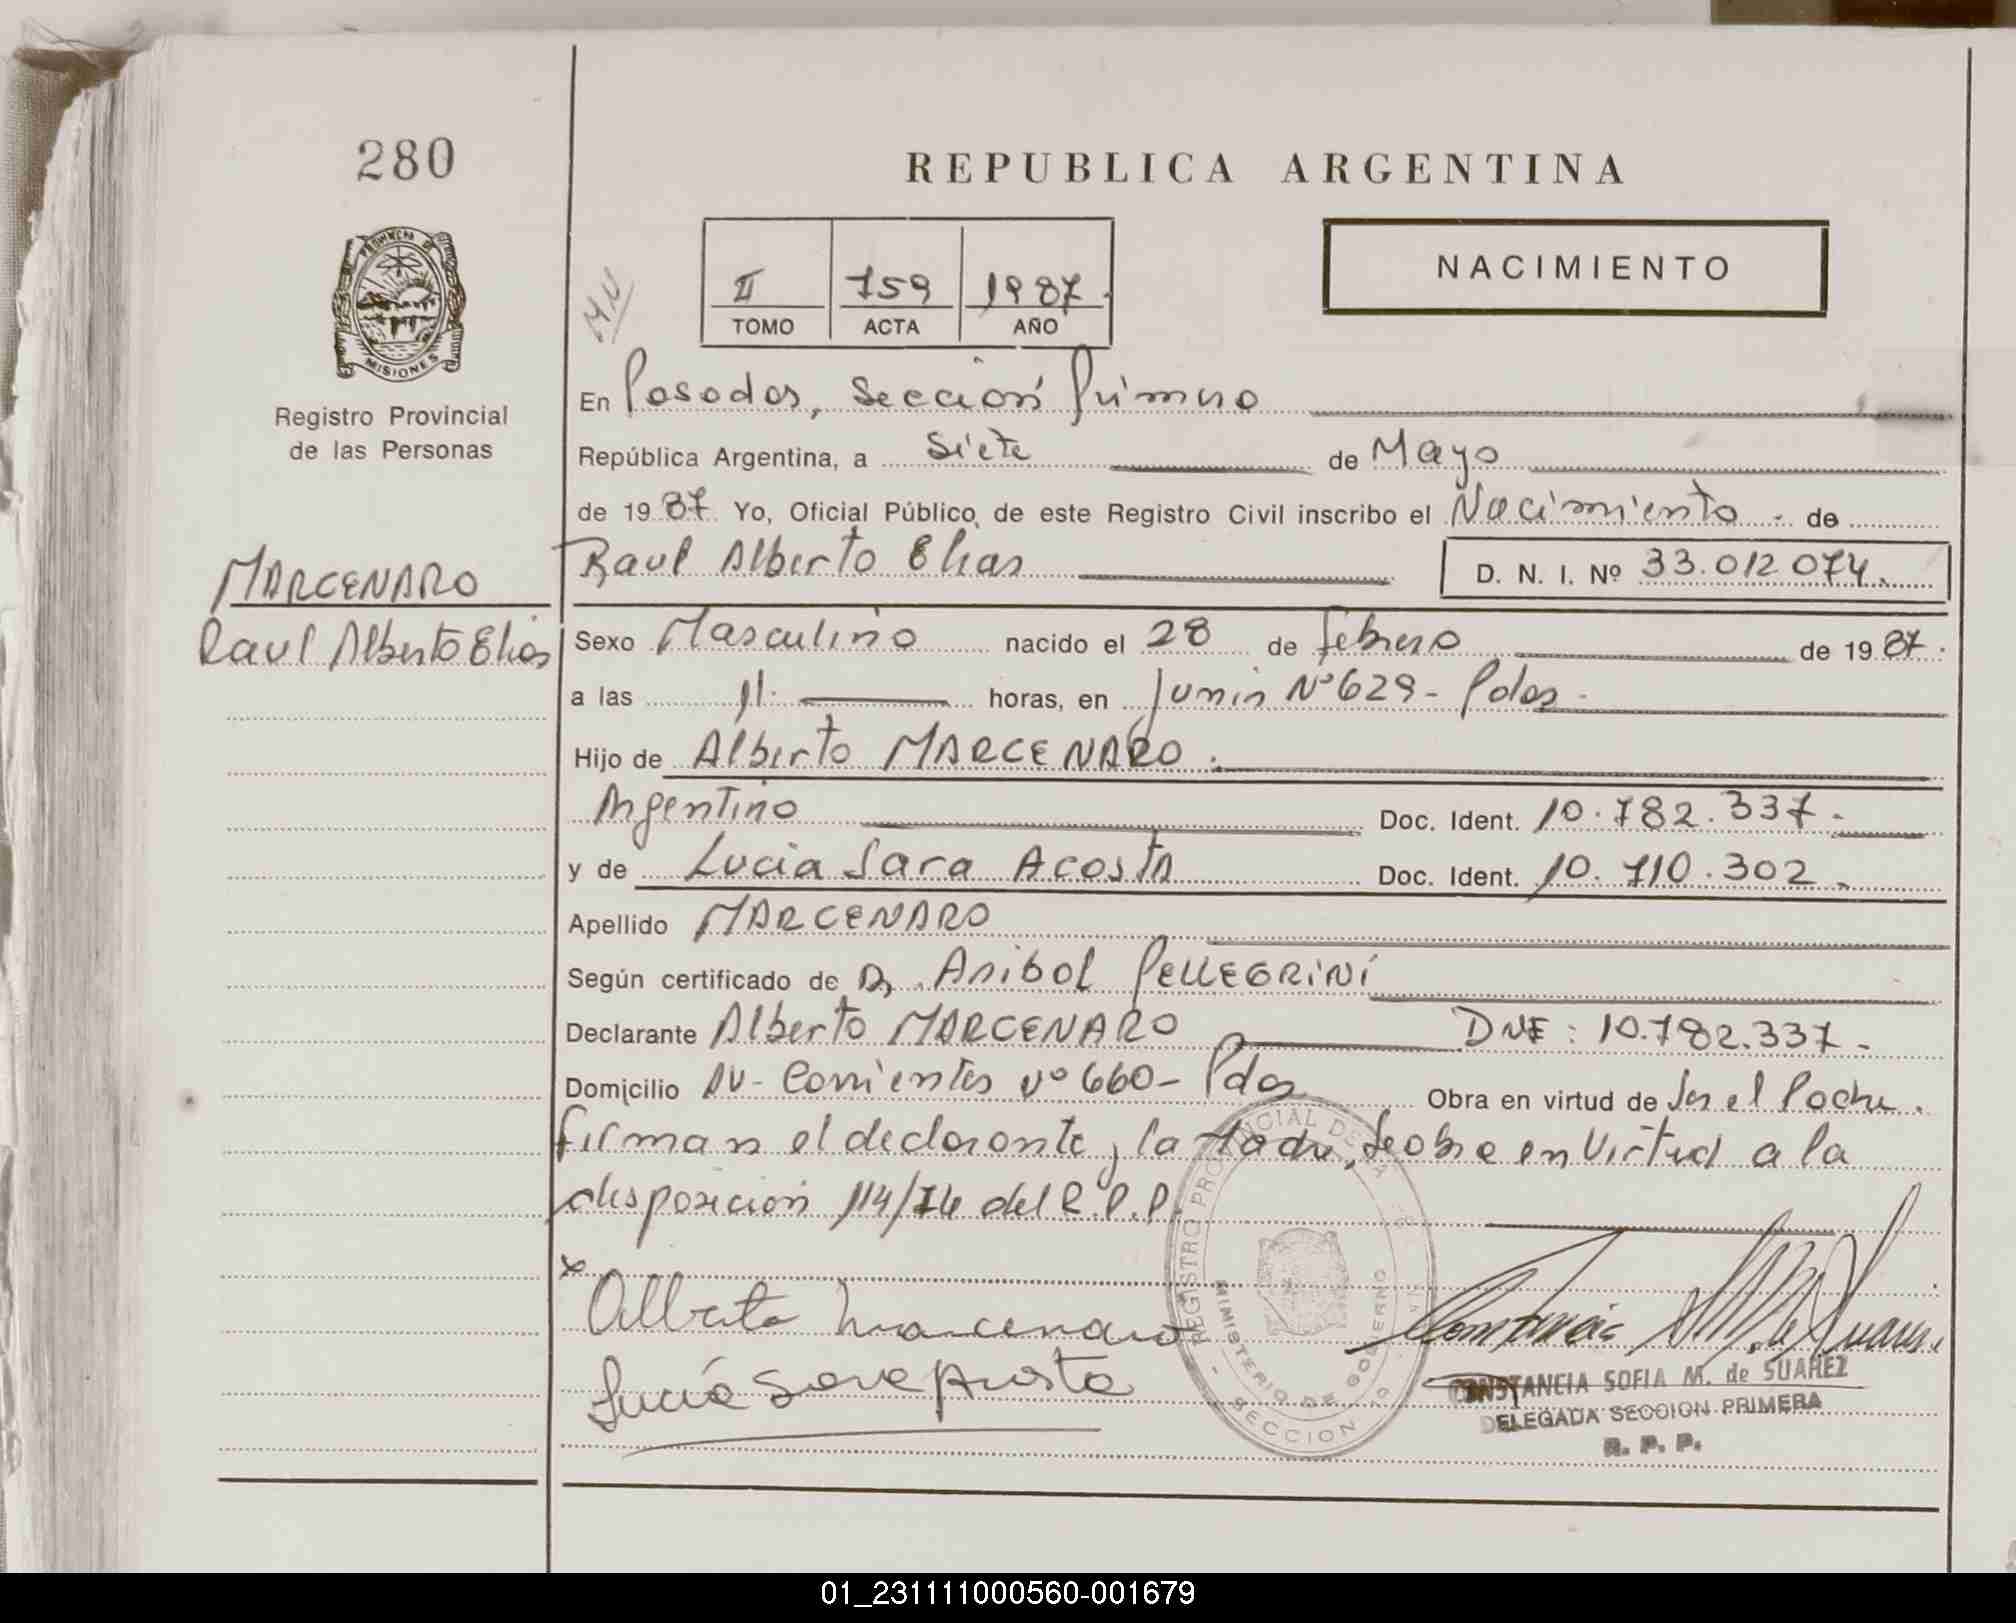 280
REPUBLICA ARGENTINA
PROVINCIA DE
MISIONES
Registro Provincial
de las Personas
M.N
II 759 1987.
TOMO ACTA AÑO
NACIMIENTO
En Posadas, Sección Primera
República Argentina, a siete de Mayo
de 1987. Yo, Oficial Público, de este Registro Civil inscribo el Nacimiento. de
Raul Alberto Elias D. N. I. Nº 33.012.074.
MARCENARO
Raul Alberto Elias
Sexo Masculino nacido el 28 de febrero de 1987.
a las 11. horas, en Junin Nº 629 - Pdas.
Hijo de Alberto MARCENARO.
Argentino Doc. Ident. 10.782.337.
y de Lucia Sara ACOSTA Doc. Ident. 10.710.302.
Apellido MARCENARO
Según certificado de Dr. Anibal PELLEGRINI
Declarante Alberto MARCENARO DNI: 10.782.337.
Domicilio AV. Corrientes Nº 660 - Pdas Obra en virtud de ser el Padre.
firman el declarante, la Madre, se obra en Virtud a la
disposición 114/74 del R.P.P.
x
Alberto Marcenaro
Lucía Sara Acosta
REGISTRO PROVINCIAL DE LAS
MINISTERIO DE GOBIERNO
SECCION 1º
CONSTANCIA SOFIA M. de SUAREZ
DELEGADA SECCION PRIMERA
R. P. P.
01_231111000560-001679